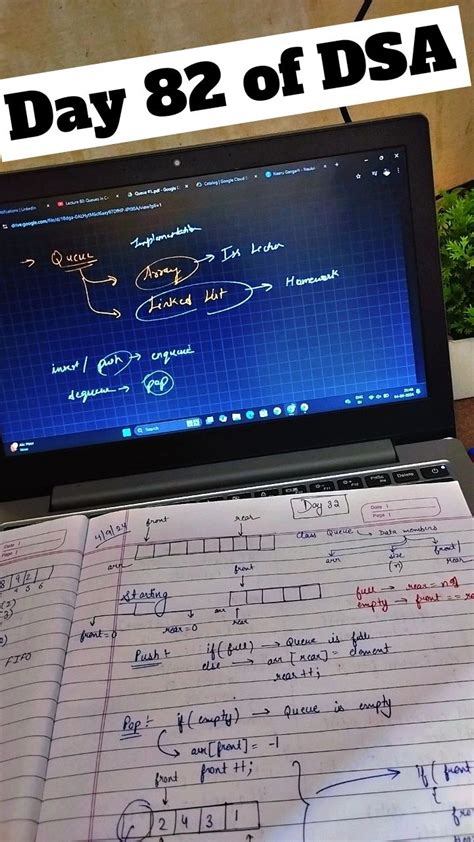 Day 82 of DSA
Queue #1.pdf - Google D
Catalog | Google Cloud
Implementation
→ Queue
Array → Iss Lecture
Linked List → Homework
insert / push → enqueue
dequeue → pop
Search
Delete
Day 32
4/9/24
front rear
class Queue → Data members
arr size (n) front/ rear
arr
front
Starting
arr rear
full → rear = n
empty → front ==
front = 0 rear = 0
FIFO
Push :- if (full) → Queue is full
else → arr [rear] = element
rear ++;
Pop :- if (empty) → Queue is empty
→ arr[front] = -1
front ++;
front
if (front
2 4 3 1